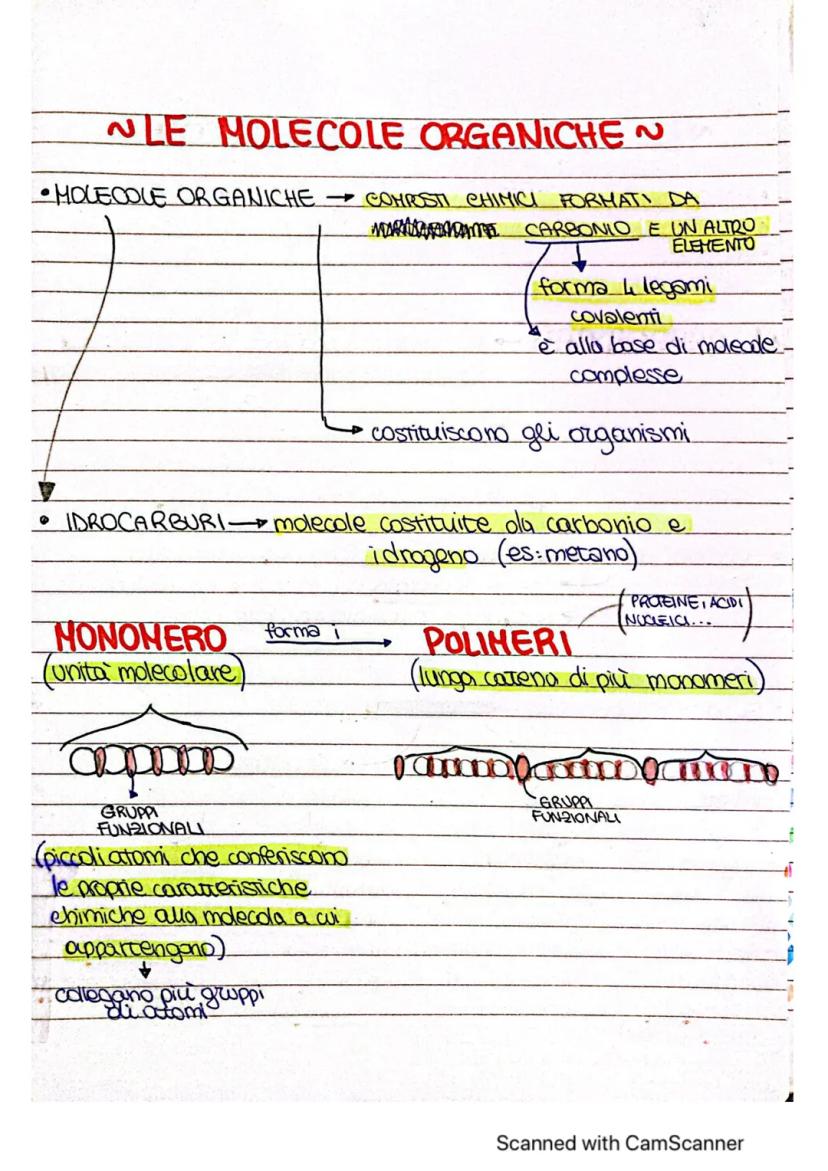 ~ LE MOLECOLE ORGANICHE ~
• MOLECOLE ORGANICHE → COMPOSTI CHIMICI FORMATI DA
CARBONIO E UN ALTRO
ELEMENTO
forma 4 legami
covalenti
è alla base di molecole
complesse
costituiscono gli organismi
• IDROCARBURI → molecole costituite da carbonio e
idrogeno (es: metano)
(PROTEINE, ACIDI
NUCLEICI...)
MONOMERO forma i → POLIMERI
(unità molecolare) (lunga catena di più monomeri)
GRUPPI
FUNZIONALI
GRUPPI
FUNZIONALI
(piccoli atomi che conferiscono
le proprie caratteristiche
chimiche alla molecola a cui
appartengono)
collegano più gruppi
di atomi
Scanned with CamScanner